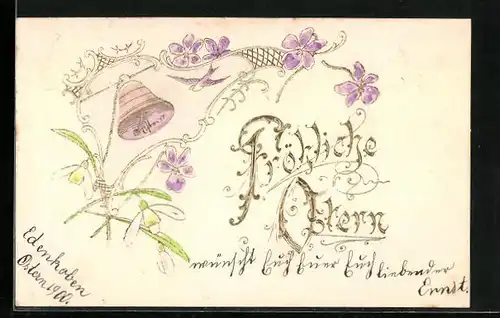 Fröhliche
Ostern
wünscht Euch Euer Euch liebender
Ernst.
Edenkoben
Ostern 1900.